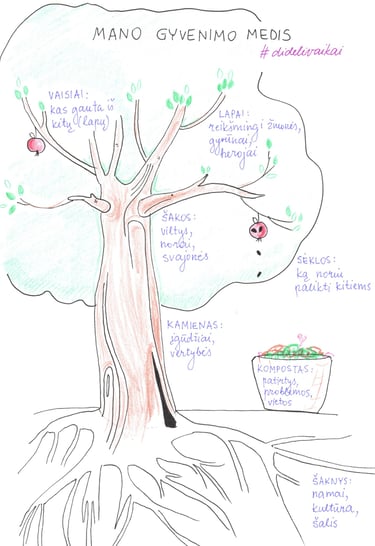 MANO GYVENIMO MEDIS
#didelivaikai
VAISIAI:
kas gauta iš
kitų (lapų)
LAPAI:
reikšmingi žmonės,
gyvūnai,
herojai
ŠAKOS:
viltys,
norai,
svajonės
SĖKLOS:
ką noriu
palikti kitiems
KAMIENAS:
įgūdžiai,
vertybės
KOMPOSTAS:
patirtys,
problemos,
vietos
ŠAKNYS:
namai,
kultūra,
šalis